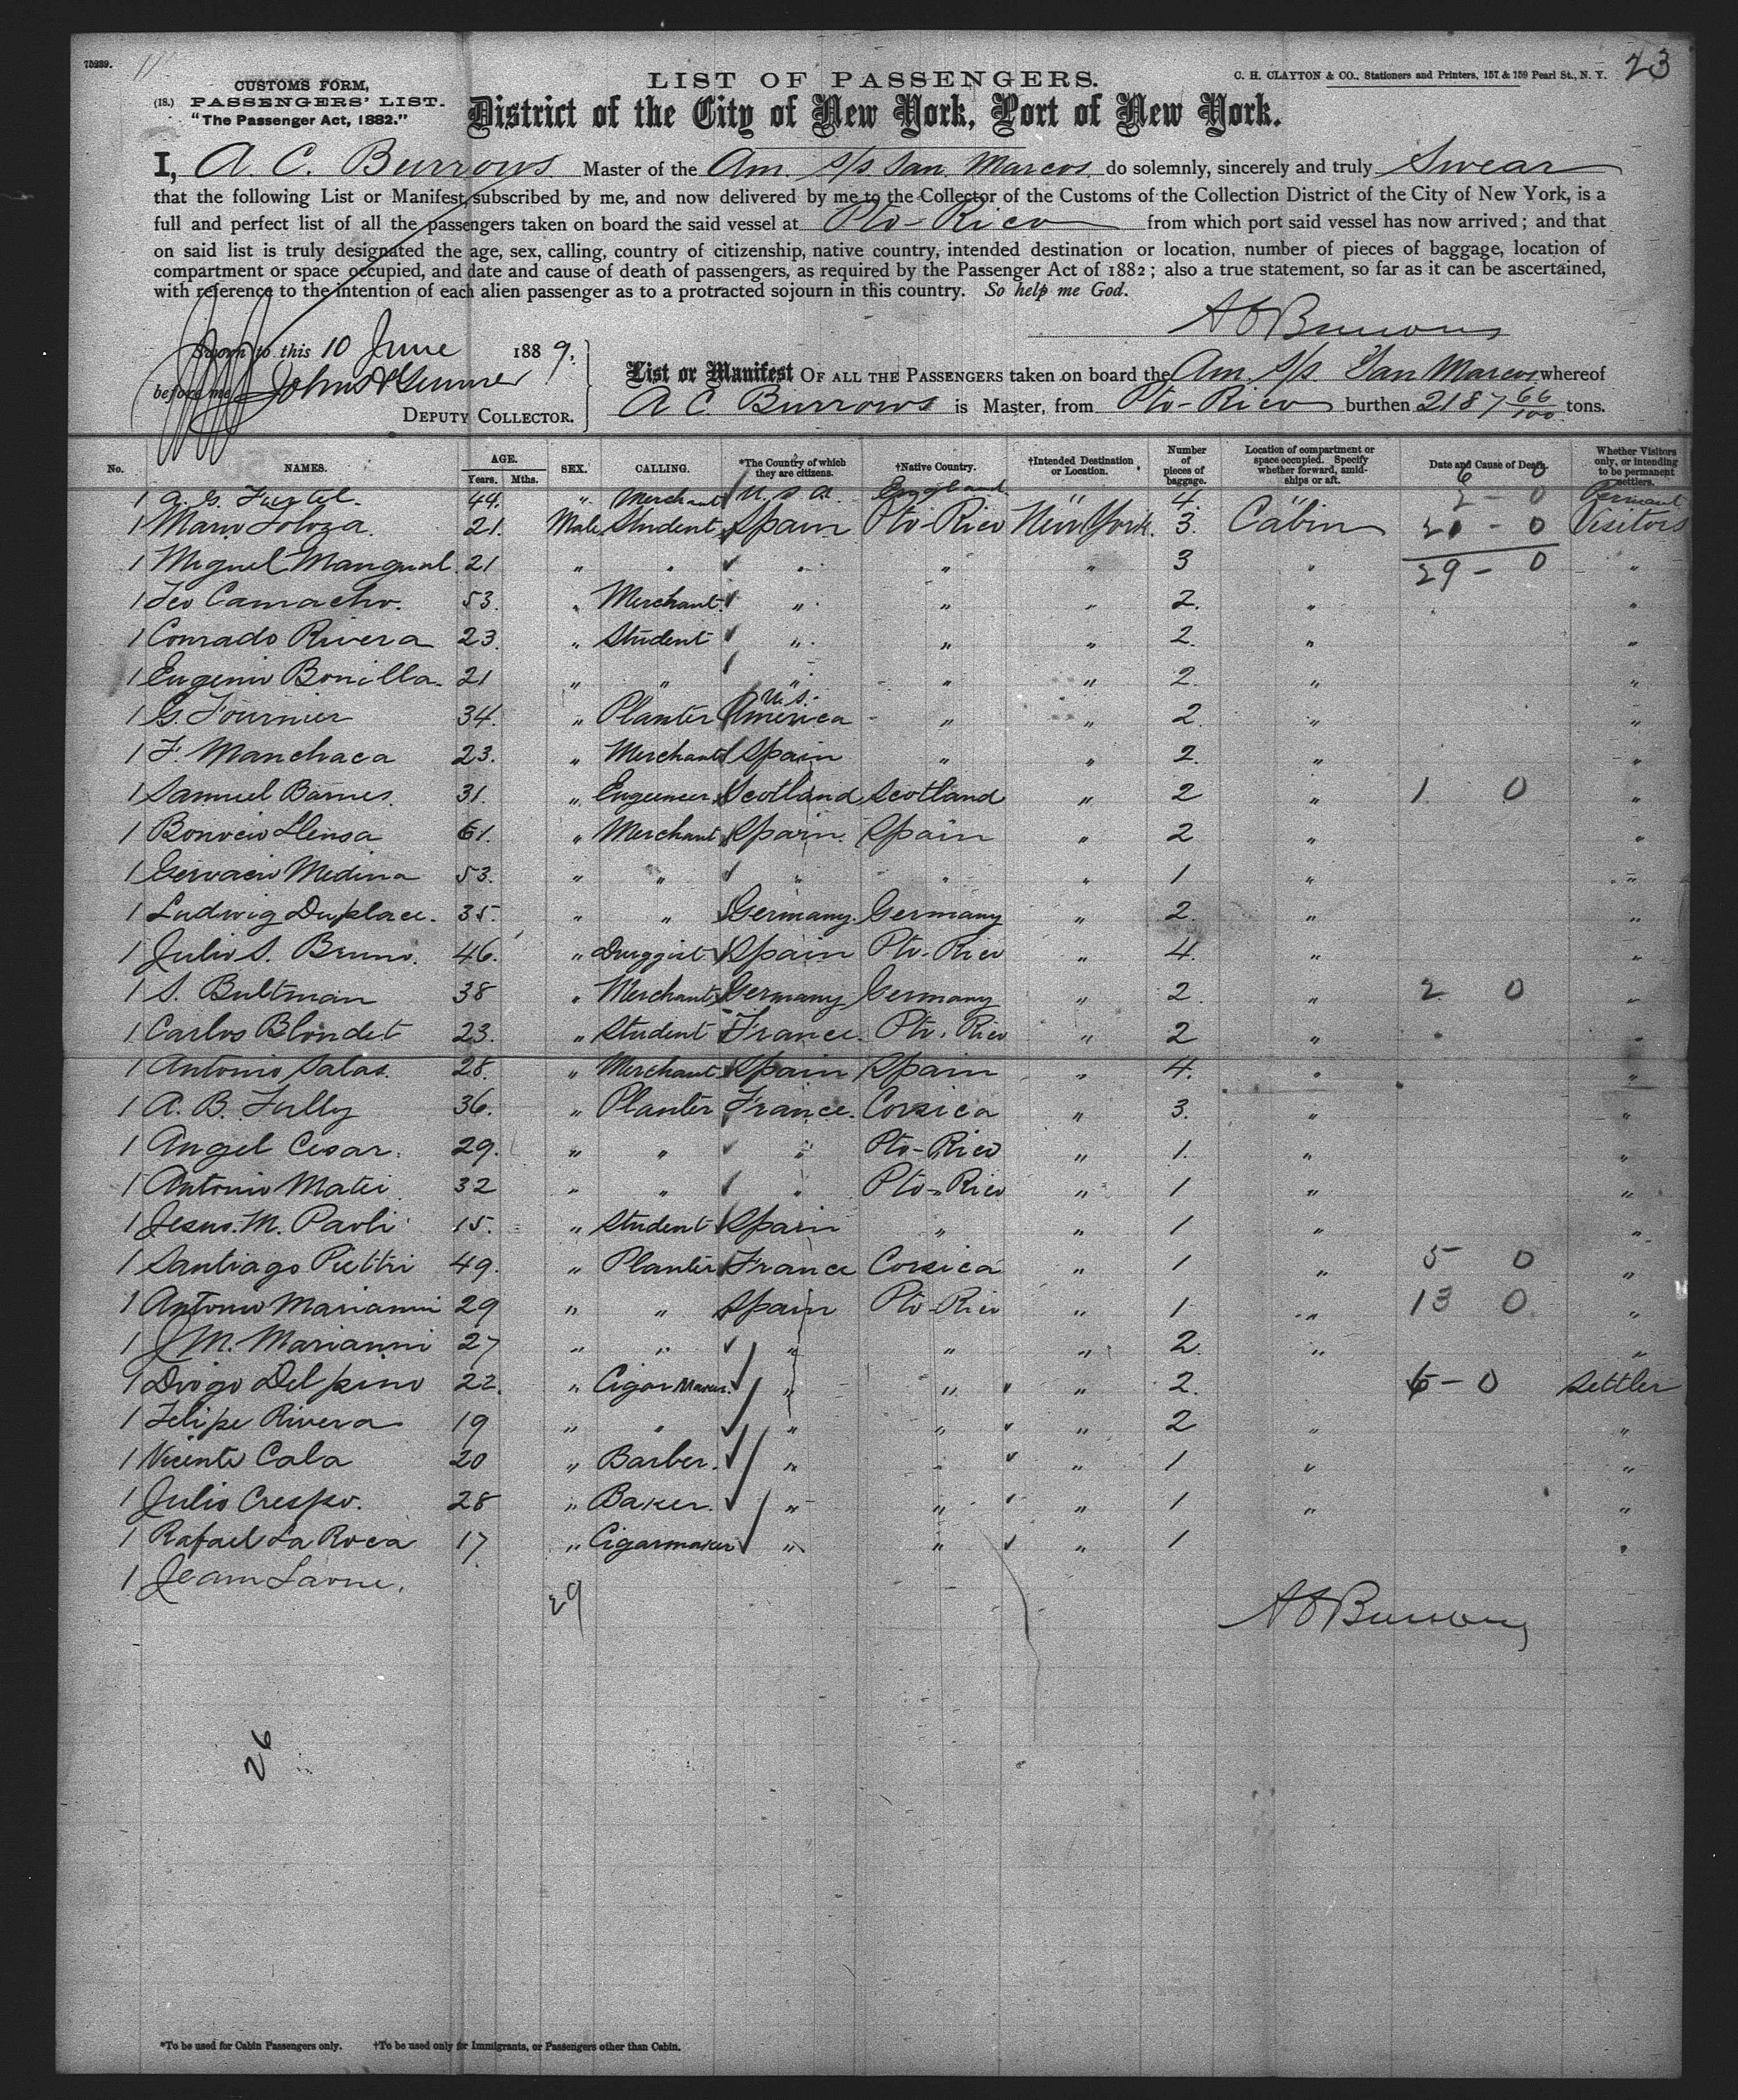 75239.
CUSTOMS FORM,
(18.) PASSENGERS' LIST.
"The Passenger Act, 1882."
LIST OF PASSENGERS.
C. H. CLAYTON & CO., Stationers and Printers, 157 & 159 Pearl St., N. Y. 23
District of the City of New York, Port of New York.
I, A. C. Burrows Master of the Am. S/S San Marcos do solemnly, sincerely and truly Swear
that the following List or Manifest, subscribed by me, and now delivered by me to the Collector of the Customs of the Collection District of the City of New York, is a
full and perfect list of all the passengers taken on board the said vessel at Pto-Rico from which port said vessel has now arrived; and that
on said list is truly designated the age, sex, calling, country of citizenship, native country, intended destination or location, number of pieces of baggage, location of
compartment or space occupied, and date and cause of death of passengers, as required by the Passenger Act of 1882; also a true statement, so far as it can be ascertained,
with reference to the intention of each alien passenger as to a protracted sojourn in this country. So help me God.
A C Burrows
Sworn to this 10 June 1889.
before me
DEPUTY COLLECTOR.
List or Manifest OF ALL THE PASSENGERS taken on board the Am. S/S. San Marcos whereof
A C. Burrows is Master, from Pto-Rico burthen 2187 66/100 tons.
No. NAMES. AGE. Years. Mths. SEX. CALLING. *The Country of which they are citizens. †Native Country. †Intended Destination or Location. Number of pieces of baggage. Location of compartment or space occupied. Specify whether forward, amidships or aft. Date and Cause of Death. Whether Visitors only, or intending to be permanent settlers.
6 0
1 A. G. 44. " Merchant U. S. A. England " 4. " 2 - 0
1 Mario Toloza. 21. Male Student Spain Pto-Rico New York. 3. Cabin 21 - 0 Visitors
1 Miguel Mangual. 21 " " " " " 3 " 29 - 0 "
1 Camacho. 53. " Merchant. " " " 2. " "
1 Conrado Rivera 23. " Student " " " 2. " "
1 Eugenio Bonilla. 21 " " " " " 2. " "
1 G. Fournier 34. " Planter U. S. America " " 2. " "
1 F. Manchaca 23. " Merchant Spain " " 2. " "
1 Samuel Barnes. 31. " Engeeneer Scotland Scotland " 2 " 1. 0 "
1 Llensa 61. " Merchant Spain. Spain " 2 " "
1 Gervacio Medina 53. " " " " " 1 " "
1 Ludwig Duplace. 35. " " Germany. Germany " 2. " "
1 Julio S. Bruno. 46. " Druggist Spain Pto-Rico " 4. " "
1 S. Bultman 38 " Merchant Germany Germany " 2. " 2 0 "
1 Carlos Blondet 23. " Student France. Pto. Rico " 2 " "
1 Antonio Salas. 28. " Merchant Spain Spain " 4. " "
1 A. B. Fully 36. " Planter France. Corsica " 3. " "
1 Angel Cesar. 29. " " " Pto-Rico " 1. " "
1 Antonio Matei 32 " " " Pto-Rico " 1 " "
1 Jesus. M. Paoli 15. " Student Spain " " 1 " "
1 Santiago Piettri 49. " Planter France Corsica " 1 " 5 0 "
1 Antonio Marianni 29 " " Spain Pto-Rico " 1 " 13 0 "
1 J M. Marianni 27 " " " " " 2. " "
1 Diogo Delpino 22. " Cigar Maker. " " " 2. 6 - 0 Settler
1 Felipe Rivera 19 " " " " " 2 " "
1 Vicente Cala 20 " Barber. " " " 1 " "
1 Julio Crespo. 28 " Baker. " " " 1 " "
1 Rafael La Roca 17. " Cigarmaker " " " 1 "
1 Jeam
29
A C Burrows
26
*To be used for Cabin Passengers only. †To be used only for Immigrants, or Passengers other than Cabin.